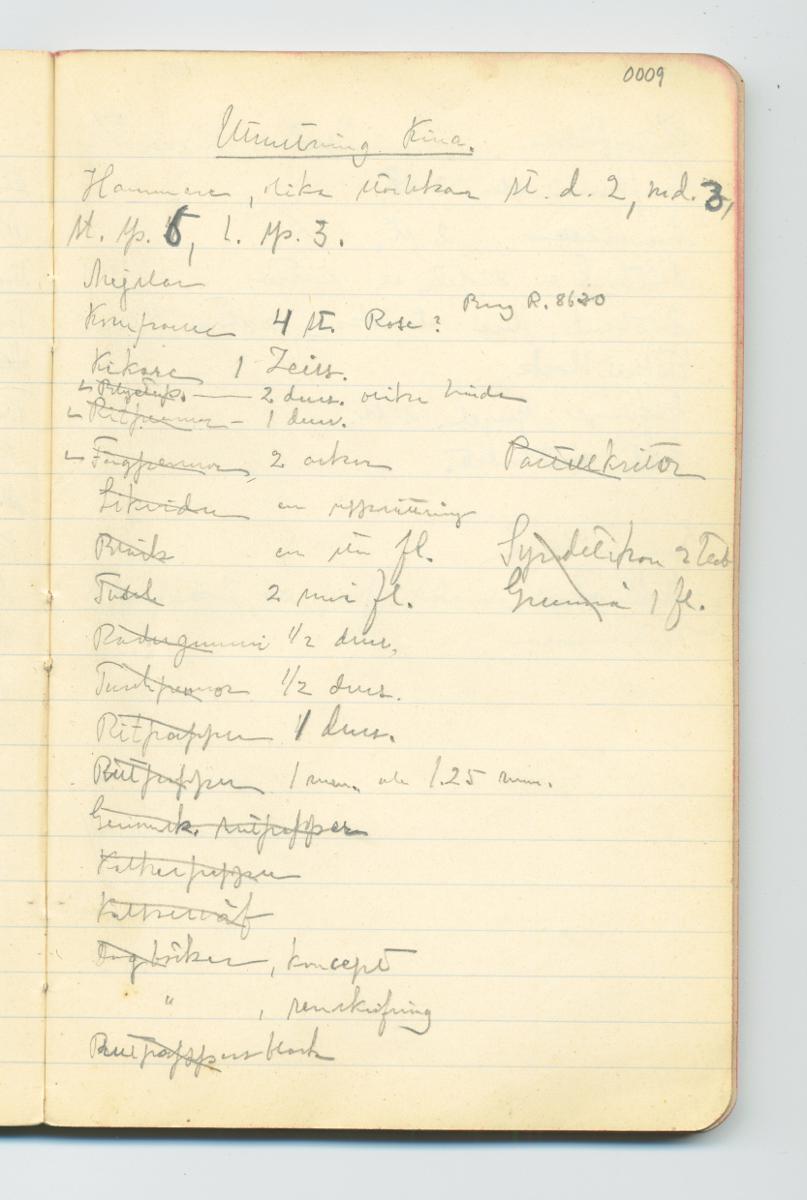 0009
Utrustning Kina.
Hammare, olika storlekar st. d. 2, md. 3,
st. sp. 5, l. sp. 3.
Mejslar
Kompasser 4 st. Rose? Brng R. 8620
Kikare 1 Zeiss.
Blyertsp. — 2 duss. olika hårdh
Ritpennor — 1 duss.
Färgpennor, 2 askar Pastellkritor
en uppsättning
Bläck en stor fl. Syndetikon 2 tub
Tusch 2 små fl. Gummi 1 fl.
Radergummi 1/2 duss.
Tuschpennor 1/2 duss.
Ritpapper 1 duss.
Rutpapper 1 mm. ok 1.25 mm.
rutpapper
Kalkerpapper
Kalkerväf
Dagböcker, koncept
" , renskrifning
Rutpappersblock